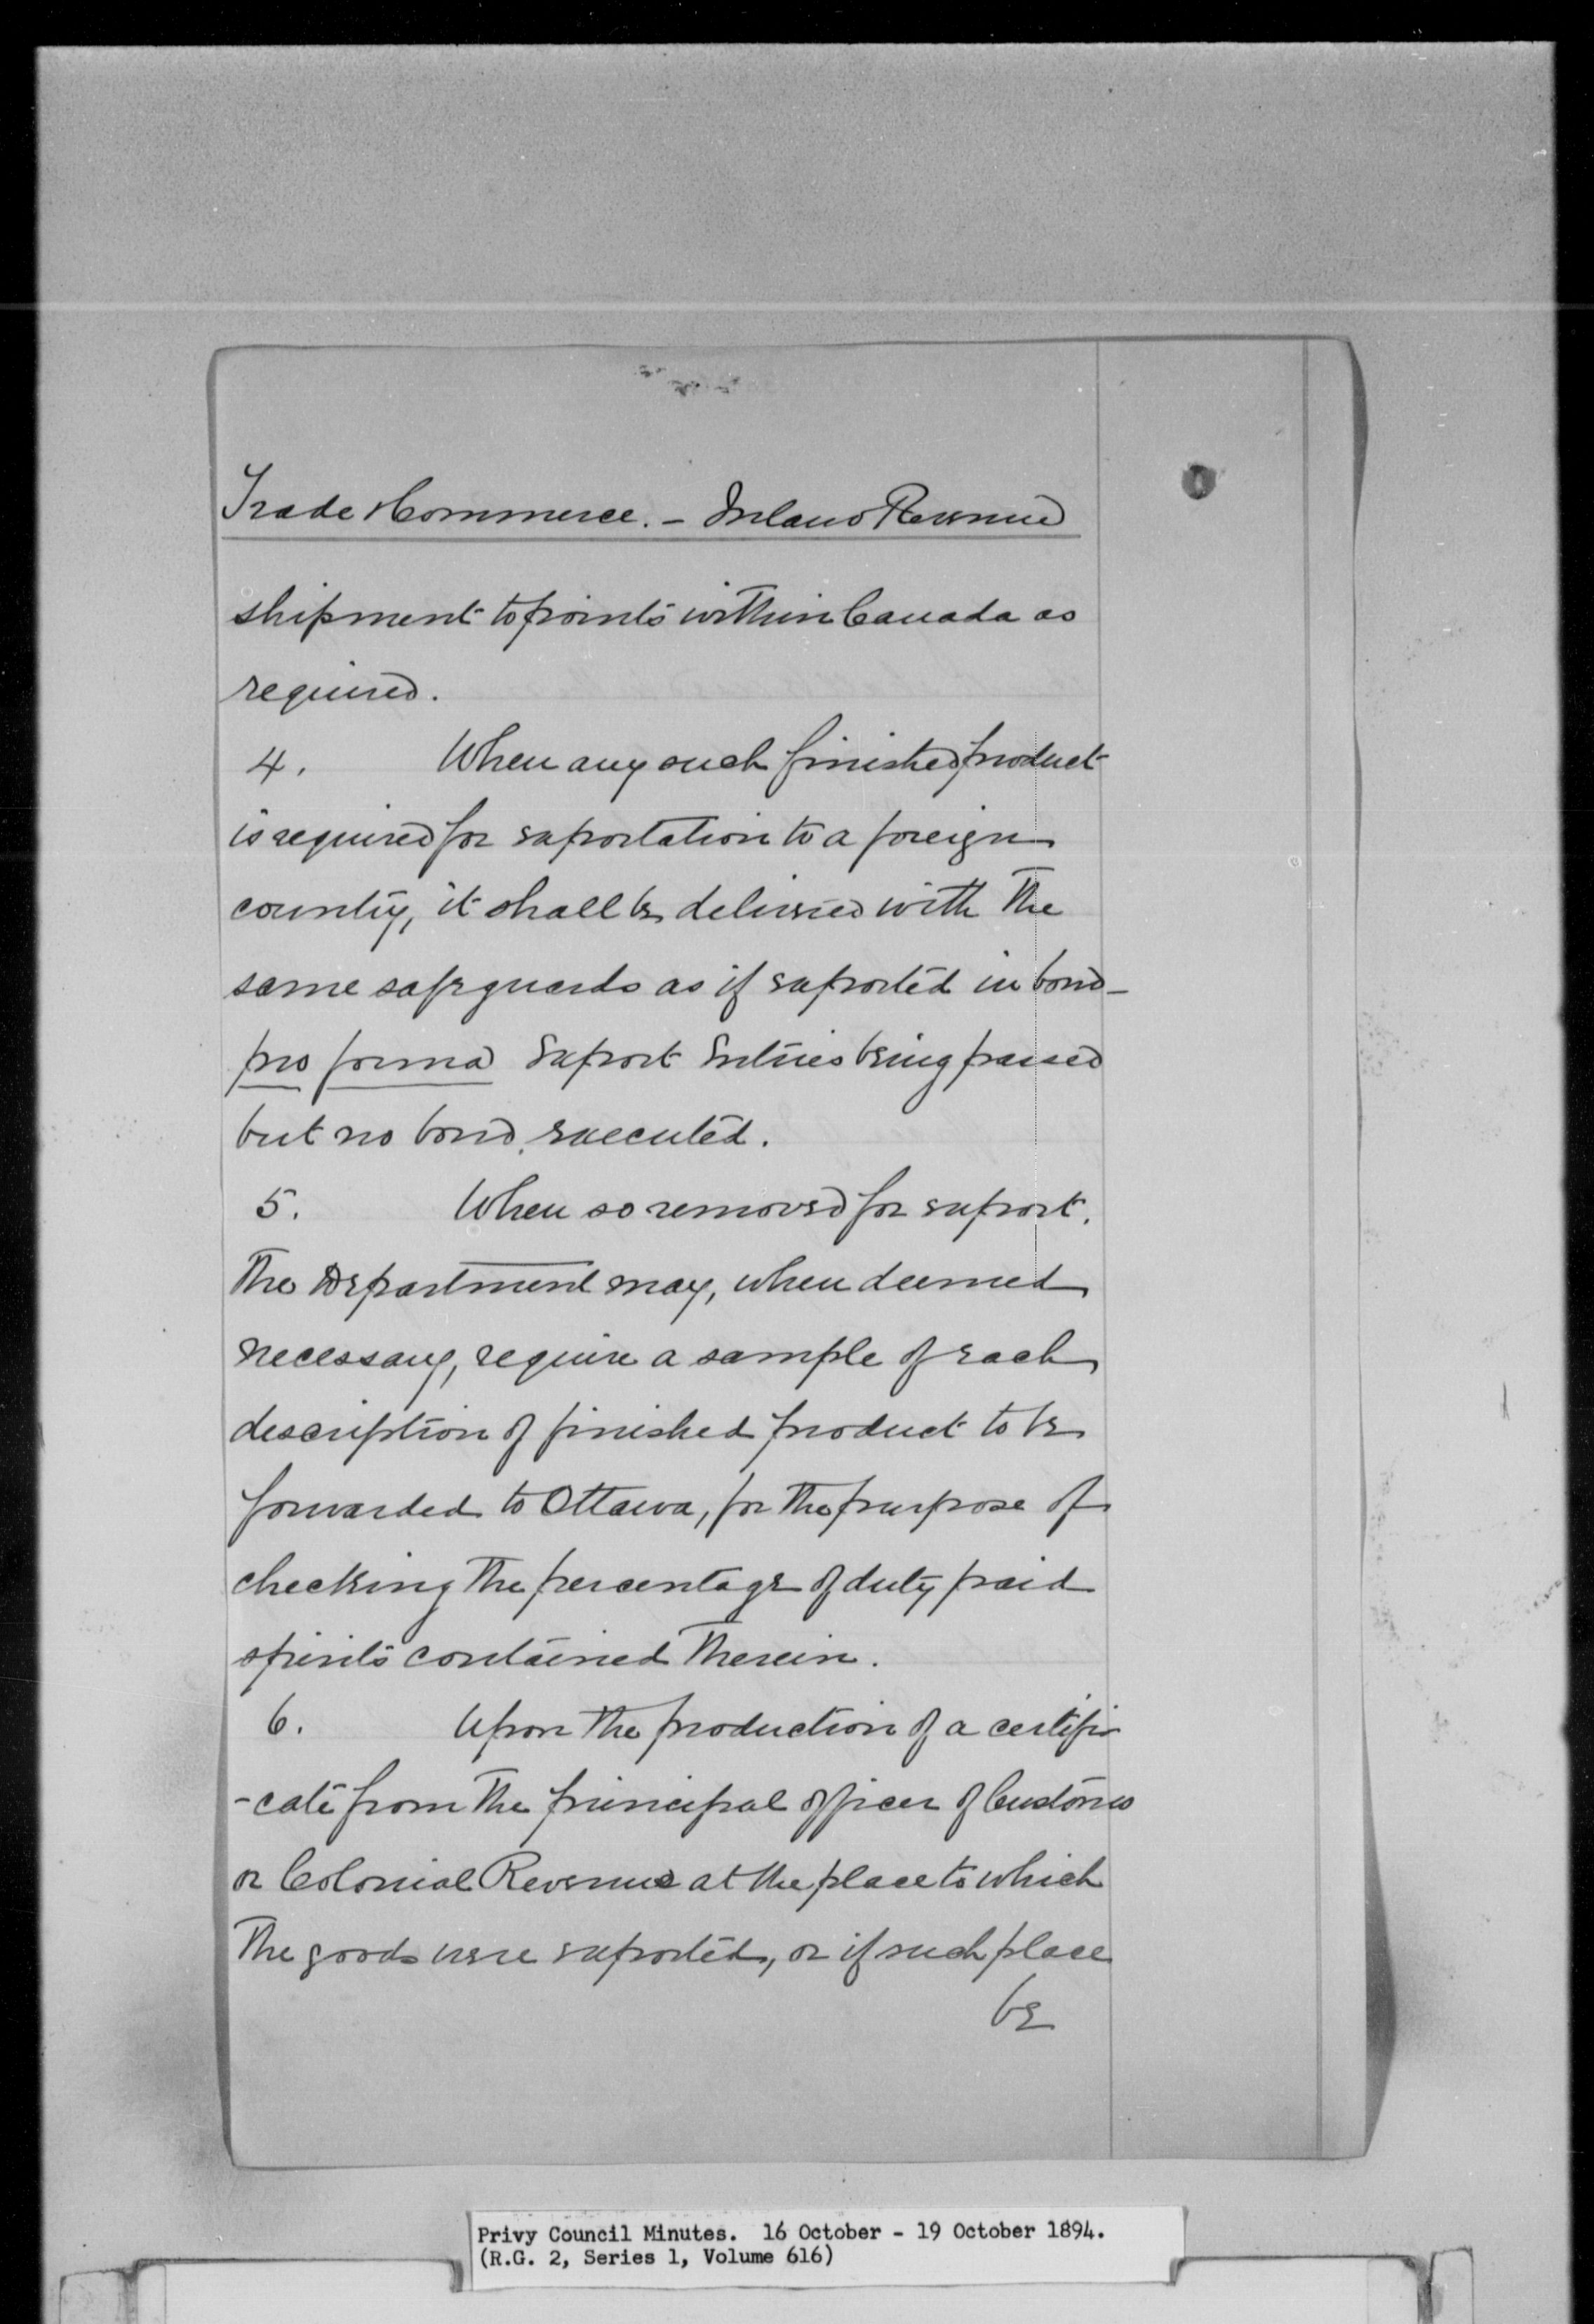 Trade & Commerce. - Inland Revenue
shipment to points within Canada as
required.
4. When any such finished product
is required for exportation to a foreign
country, it shall be delivered with the
same safeguards as if exported in bond -
pro forma Export Entries being passed
but no bond, executed.
5. When so removed for export,
the Department may, when deemed
necessary, require a sample of each
description of finished product to be
forwarded to Ottawa, for the purpose of
checking the percentage of duty paid
spirits contained therein.
6. Upon the production of a certifi-
-cate from the principal officer of Customs
or Colonial Revenue at the place to which
the goods were exported, or if such place
be
Privy Council Minutes. 16 October - 19 October 1894.
(R.G. 2, Series 1, Volume 616)